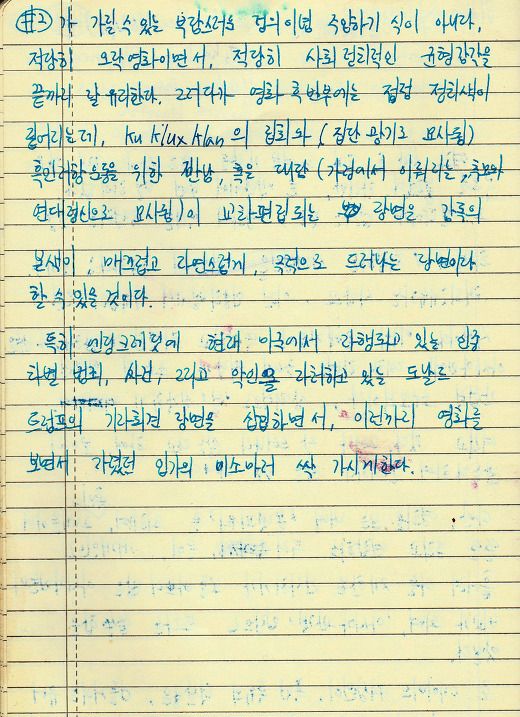 #2) 가 가질 수 있는 부담스러운 정의이념 주입하기 식이 아니라,
적당히 오락영화이면서, 적당히 사회 정치적인 균형감각을
끝까지 잘 유지한다. 그러다가 영화 후반부에는 점점 정치색이
짙어지는데, Ku Klux Klan 의 집회와 (집단 광기로 묘사됨)
흑인저항운동을 위한 만남, 혹은 대담 (가정에서 이뤄지는, 추모와
연대형식으로 묘사됨)이 교차편집되는 장면은 감독의
본색이, 매끄럽고 자연스럽게, 극적으로 드러나는 장면이라
할 수 있을 것이다.
특히 엔딩크레딧에 현재 미국에서 자행되고 있는 인종
차별 범죄, 사건, 그리고 악인을 자처하고 있는 도날드
트럼프의 기자회견 장면을 삽입하면서, 이런까지 영화를
보면서 가졌던 입가의 미소마저 싹 가시게한다.